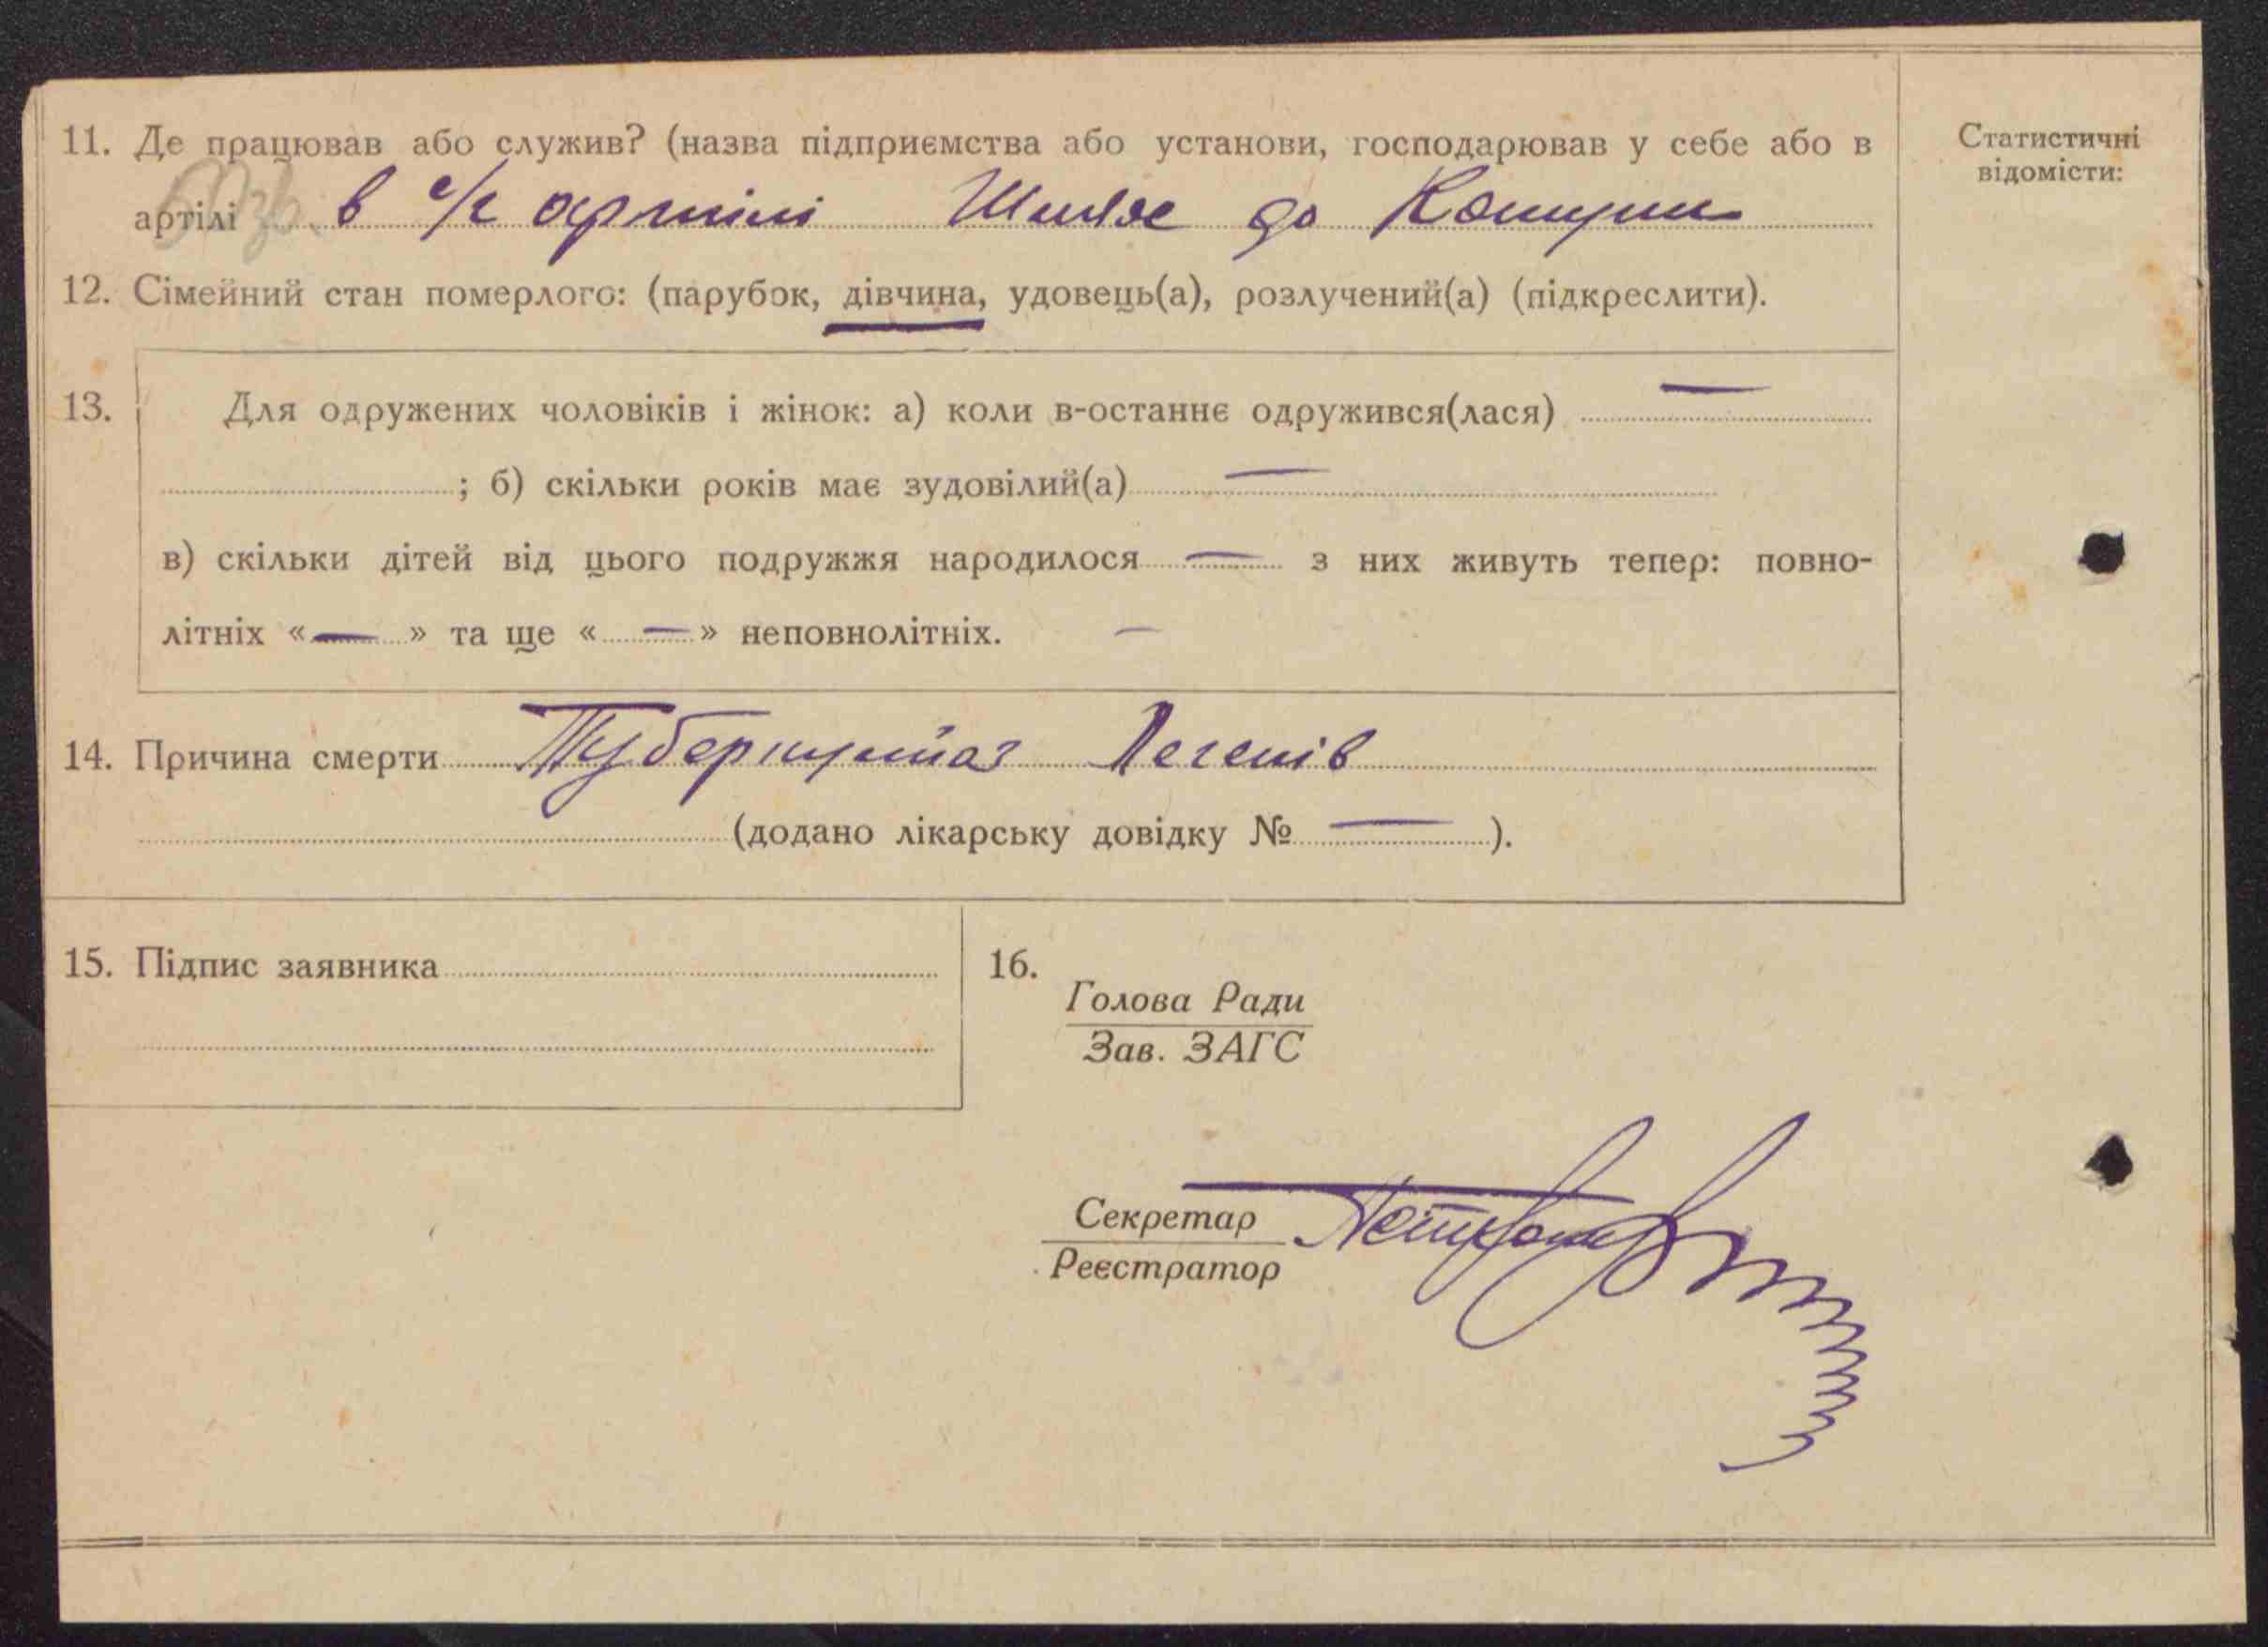 11. Де працював або служив? (назва підприємства або установи, господарював у себе або в
артілі в с/г артілі Шлях до Комуни
12. Сімейний стан померлого: (парубок, дівчина, удовець(а), розлучений(а) (підкреслити).
13. Для одружених чоловіків і жінок: а) коли в-останнє одружився(лася) —
; б) скільки років має зудовілий(а) —
в) скільки дітей від цього подружжя народилося — з них живуть тепер: повно-
літніх «—» та ще «—» неповнолітніх. —
14. Причина смерти Туберкульоз Легенів
(додано лікарську довідку № —).
15. Підпис заявника
16.
Голова Ради
Зав. ЗАГС
Секретар
Реєстратор
Статистичні
відомісти: